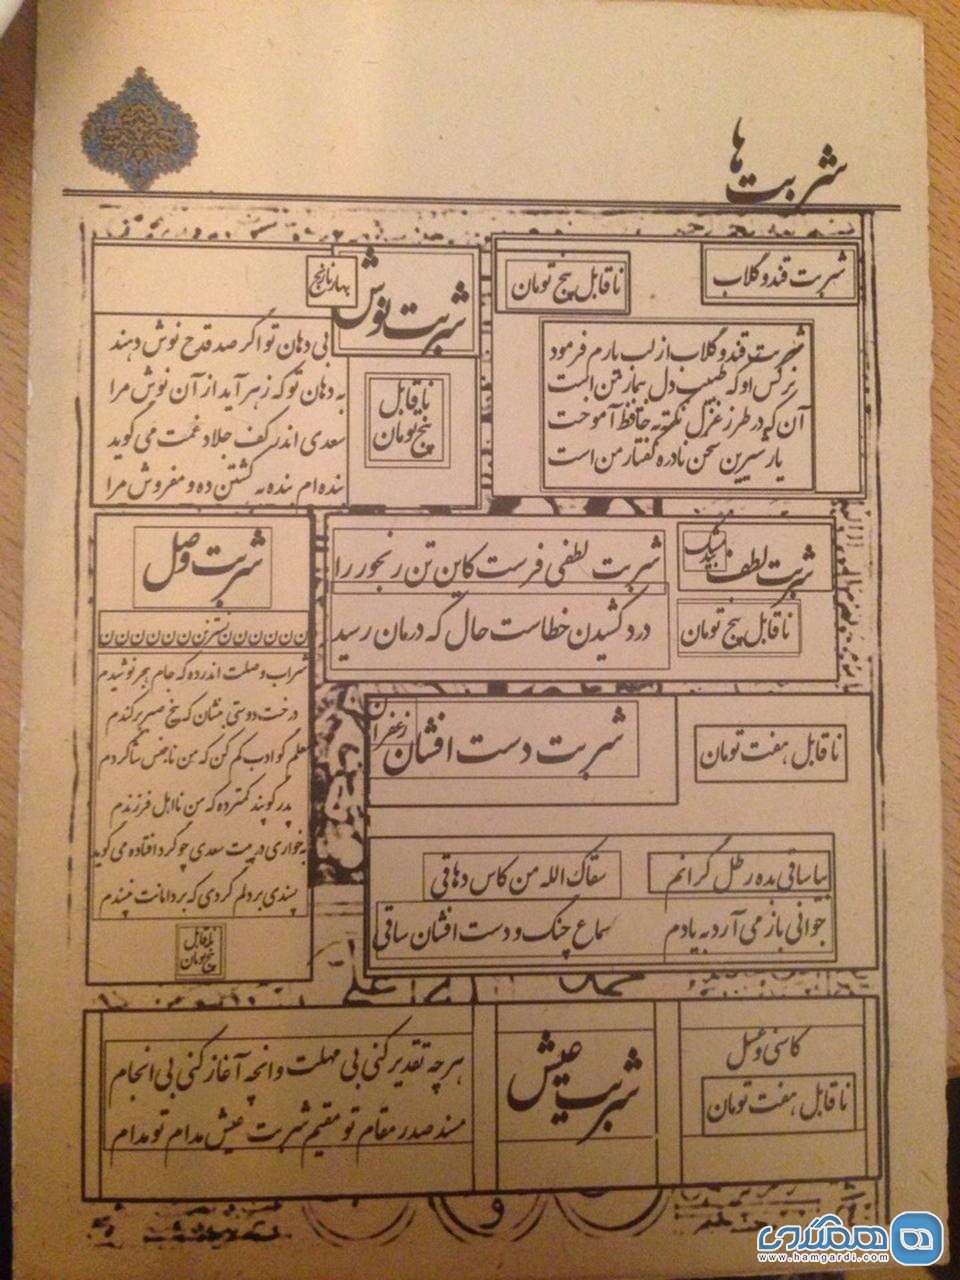 شربت ها
شربت قند و گلاب
ناقابل پنج تومان
شربت قند و گلاب از لب یارم فرمود
نرگس او که طبیب دل بیمار من است
آن که در طرز غزل نکته به حافظ آموخت
یار شیرین سخن نادره گفتار من است
شربت نوش
بهار نارنج
ناقابل
پنج تومان
بی دهان تو اگر صد قدح نوش دهند
به دهان تو که زهر آید از آن نوش مرا
سعدی اندر کف جلاد غمت می گوید
بنده ام بنده به کشتن ده و مفروش مرا
شربت لطف
بیدمشک
ناقابل پنج تومان
شربت لطفی فرست کاین تن رنجور را
درد کشیدن خطاست حال که درمان رسید
شربت وصل
نسترن ن ن ن ن ن ن ن
شراب وصلت اندر ده که جام هجر نوشیدم
درخت دوستی بنشان که بیخ صبر برکندم
معلم گو ادب کم کن که من ناجنس شاگردم
پدر گو پند کمتر ده که من نااهل فرزندم
به خواری در پیت سعدی چو گرد افتاده می گوید
پسندی بر دلم گردی که بر دامانت نپسندم
ناقابل
پنج تومان
شربت دست افشان
زعفران
ناقابل هفت تومان
بیا ساقی بده رطل گرانم
سقاک الله من کاس دهاقی
جوانی باز می آرد به یادم
سماع چنگ و دست افشان ساقی
کاسنی و عسل
ناقابل هفت تومان
شربت عیش
هر چه تقدیر کنی بی مهلت وانچه آغاز کنی بی انجام
مسند صدر مقام تو مقیم شربت عیش مدام تو مدام
همگردی
www.hamgardi.com